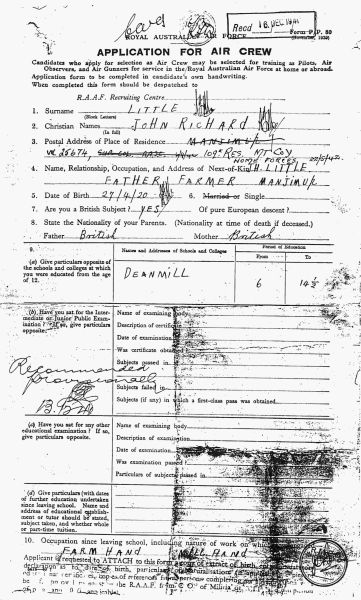 card
Recd 16 DEC 1941
Form P/P. 80
ROYAL AUSTRALIAN AIR FORCE
APPLICATION FOR AIR CREW
Candidates who apply for selection as Air Crew may be selected for training as Pilots, Air
Observers, and Air Gunners for service in the Royal Australian Air Force at home or abroad.
Application form to be completed in candidate's own handwriting.
When completed this form should be despatched to
R.A.A.F. Recruiting Centre
1. Surname LITTLE
(Block Letters)
2. Christian Names JOHN RICHARD
(In full)
3. Postal Address of Place of Residence MANJIMUP
109 RES MT COY
NORTH FORCES 22/5/42
4. Name, Relationship, Occupation, and Address of Next-of-Kin H. LITTLE
FATHER FARMER MANJIMUP
5. Date of Birth 27/4/20 6. Married or Single
7. Are you a British Subject? YES Of pure European descent?
8. State the Nationality of your Parents. (Nationality at time of death if deceased.)
Father British Mother British
9. Names and Addresses of Schools and Colleges Period of Education
From To
(a) Give particulars opposite of
the schools and colleges at which
you were educated from the age
of 12.
DEANMILL 6 14½
(b) Have you sat for the Inter-
mediate or Junior Public Exam-
ination? If so, give particulars
opposite.
Name of examining body
Description of certificate
Date of examination
Was certificate obtained
Subjects passed in
Subjects failed in
Subjects (if any) in which a first-class pass was obtained
Recommended
provisionally
(c) Have you sat for any other
educational examination? If
so, give particulars opposite.
Name of examining body
Description of examination
Date of examination
Was examination passed?
Particulars of subjects passed in
(d) Give particulars (with dates
of further education undertaken
since leaving school. Name and
address of educational establish-
ment or tutor should be stated,
subject taken, and whether whole
or part-time tuition.
10. Occupation since leaving school, including nature of work on which
FARM HAND MILL HAND
Applicant is requested to ATTACH to this form a copy of extract of birth